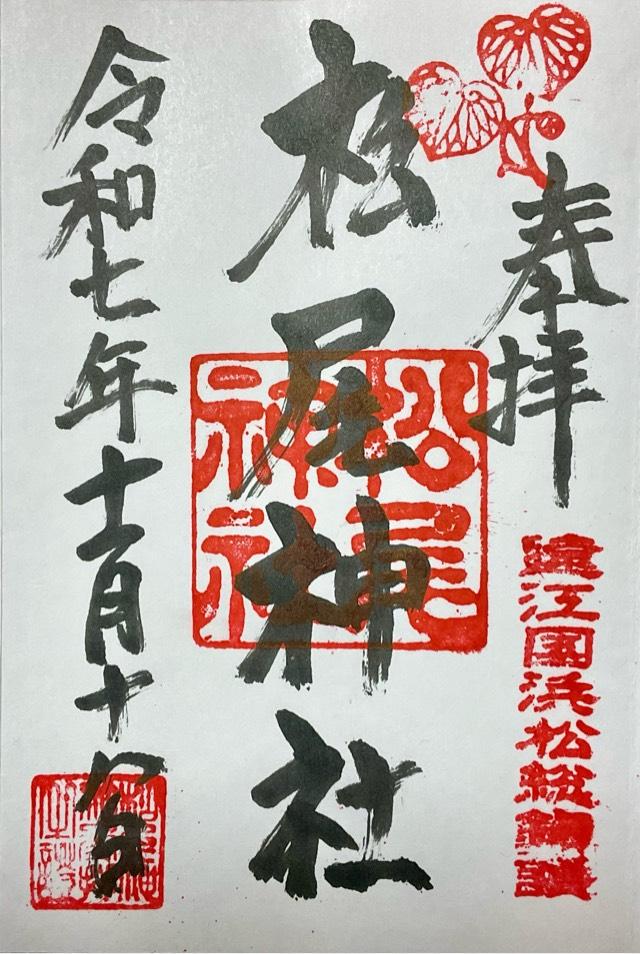 奉拝
遠江国浜松総鎮護
松尾神社
松尾神社
令和七年十一月十八日